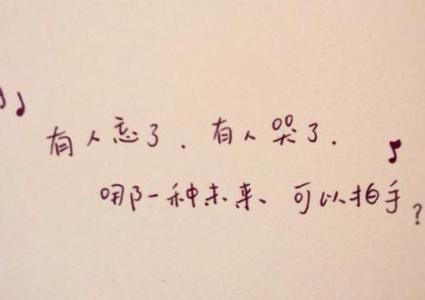 有人忘了.有人哭了.
哪一种未来、可以拍手?